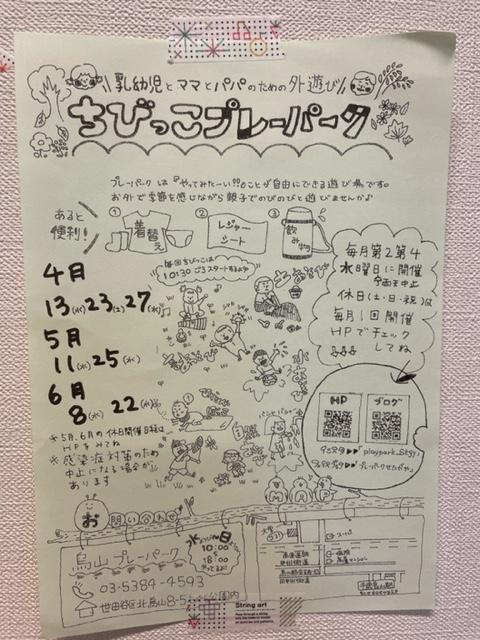 乳幼児とママとパパのための外遊び
ちびっこプレーパーク
プレーパークは『やってみたーい!!』のことが自由にできる遊び場です。
お外で季節を感じながら親子でのびのびと遊びませんか♪
あると便利!
① 着替え
② レジャーシート
③ 飲み物
毎回ちびっこは
10:30ごろスタートするよ
4月
13(水) 23(土) 27(水)
5月
11(水) 25(水)
6月
8(水) 22(水)
※5月、6月の休日開催日程は
HPをみてね
※感染症対策のため
中止になる場合が
あります
毎月第2第4
水曜日に開催
休日(土・日・祝)は
毎月1回開催
HPでチェック
してね
HP
ブログ
MAP
お問い合わせ
烏山プレーパーク
水〜日
10:00
18:00
03-5384-4593
世田谷区北烏山
スーパ
String art